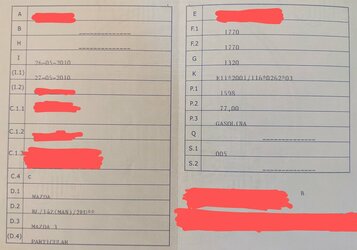 A
B ----------------
H ----------------
I 26-05-2010
(I.1) 27-05-2010
(I.2)
C.1.1
C.1.2
C.1.3
C.4 c
D.1 MAZDA
D.2
D.3 MAZDA 3
(D.4) PARTICULAR
E
F.1 1770
F.2 1770
G 1320
K e11*2001/116*0262*03
P.1 1598
P.2 77,00
P.3 GASOLINA
Q ----------------
S.1 005
S.2 ----------------